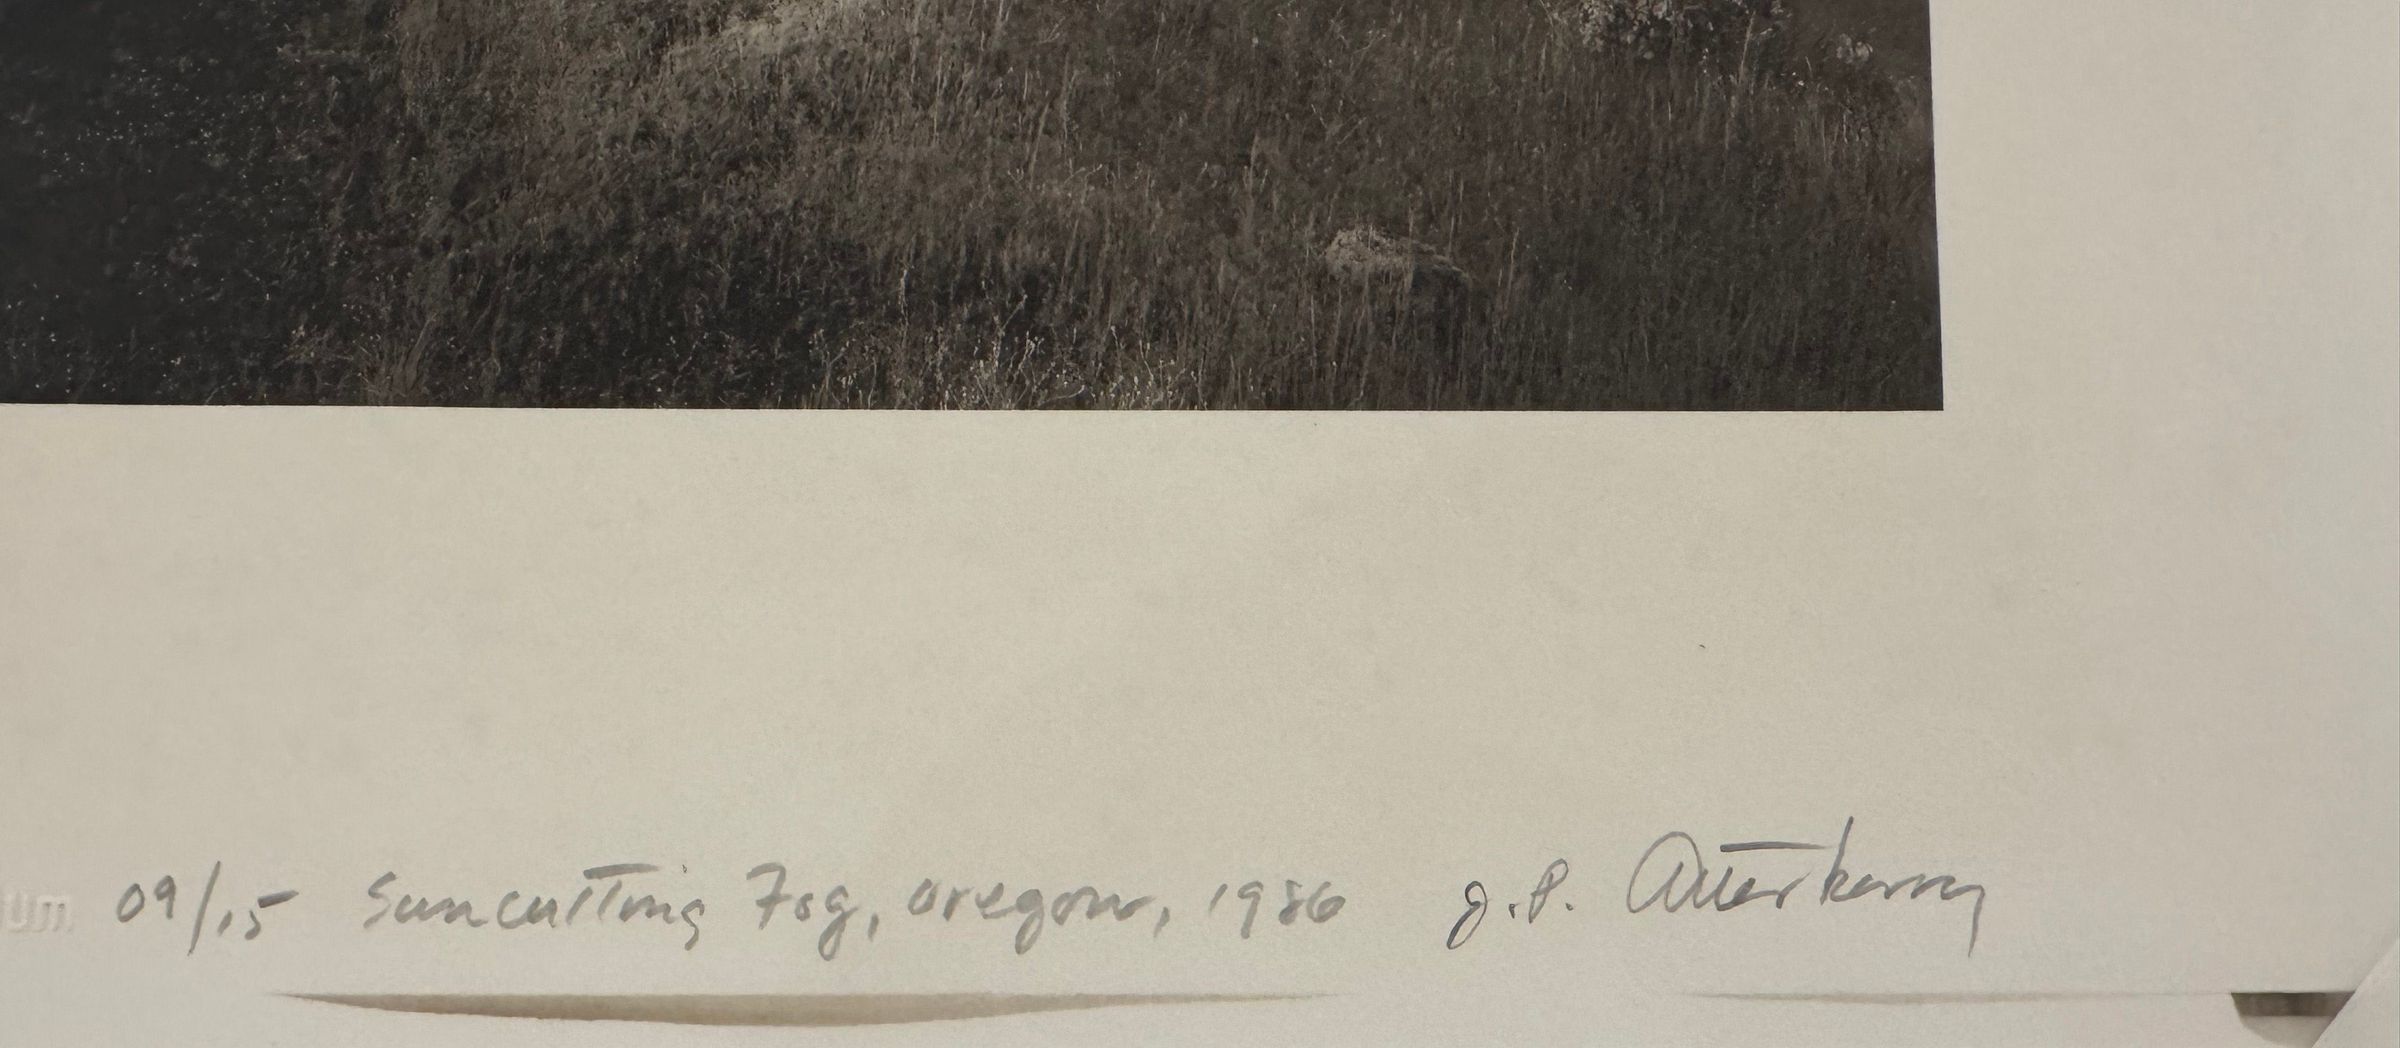 um 09/15 Sun cutting Fog, Oregon, 1986 J.P. Atterberry